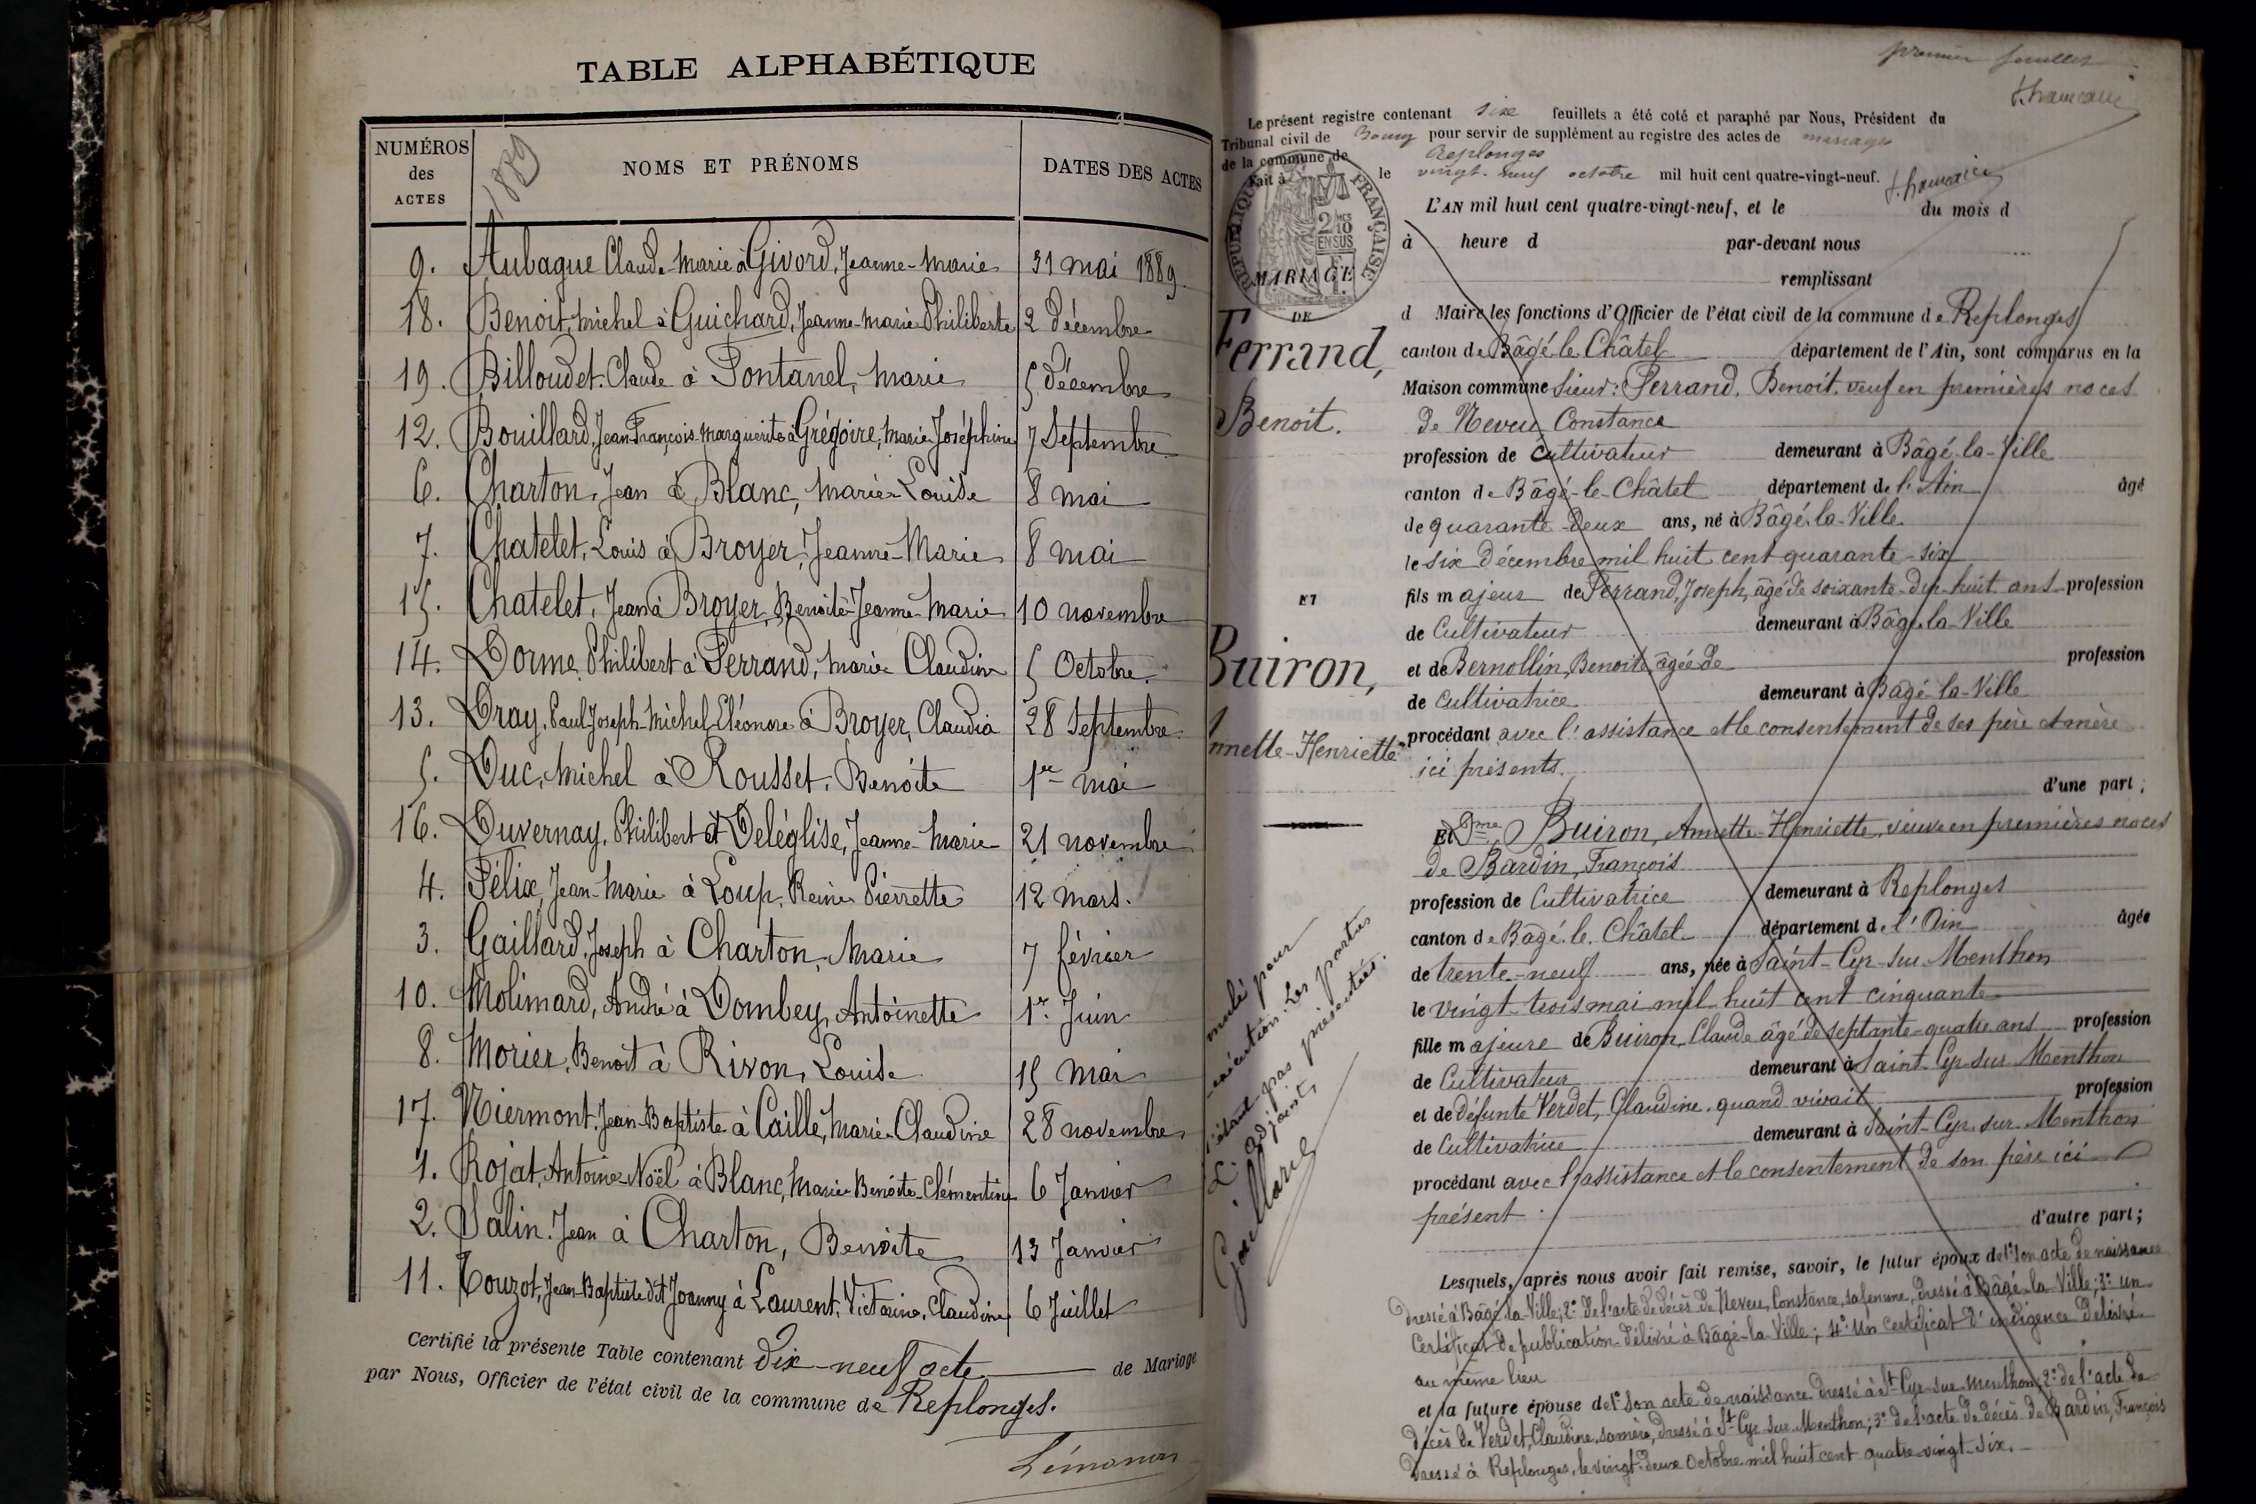 TABLE ALPHABÉTIQUE
NUMÉROS des ACTES
1889
NOMS ET PRÉNOMS
DATES DES ACTES
9. Aubague Claude-Marie à Givord, Jeanne-Marie 31 mai 1889.
18. Benoit, Michel à Guichard, Jeanne-Marie-Philiberte 2 décembre
19. Billoudet, Claude à Fontanel, Marie 5 décembre
12. Bouillard, Jean François Marguerite à Grégoire, Marie Joséphine 7 Septembre
6. Charton, Jean à Blanc, Marie-Louise 8 mai
7. Chatelet, Louis à Broyer, Jeanne-Marie 8 mai
15. Chatelet, Jean à Broyer, Benoite-Jeanne-Marie 10 novembre
14. Dorme Philibert à Ferrand, Marie Claudine 5 Octobre
13. Dray, Paul-Joseph-Michel-Eléonore à Broyer, Claudia 28 Septembre
5. Duc, Michel à Rousset, Benoite 1er mai
16. Duvernay, Philibert et Deléglise, Jeanne-Marie 21 novembre
4. Félix, Jean-Marie à Loup, Reine Pierrette 12 mars.
3. Gaillard, Joseph à Charton, Marie 7 février
10. Molimard, André à Dombey, Antoinette 1er Juin
8. Morier, Benoit à Rivon, Louise 15 Mai
17. Niermont, Jean-Baptiste à Caille, Marie-Claudine 28 novembre
1. Rojat, Antoine-Noël à Blanc, Marie Benoite-Clémentine 6 Janvier
2. Salin, Jean à Charton, Benoite 13 Janvier
11. Touzot, Jean-Baptiste dit Joanny à Laurent, Victorine, Claudine 6 Juillet
Certifié la présente Table contenant dix-neuf acte de Mariage
par Nous, Officier de l'état civil de la commune de Replonges.
premier
Le présent registre contenant six feuillets a été coté et paraphé par Nous, Président du
Tribunal civil de Bourg pour servir de supplément au registre des actes de mariage
de la commune de Replonges
Fait à le vingt-neuf octobre mil huit cent quatre-vingt-neuf.
RÉPUBLIQUE FRANÇAISE
2 10
EN SUS
L'AN mil huit cent quatre-vingt-neuf, et le du mois d
à heure d par-devant nous
remplissant
MARIAGE
DE
Ferrand,
Benoit.
ET
Buiron,
Annette-Henriette
d Maire les fonctions d'Officier de l'état civil de la commune de Replonges
canton de Bâgé-le-Châtel département de l'Ain, sont comparus en la
Maison commune Sieur: Ferrand, Benoit, veuf en premières noces
de Neveu Constance
profession de Cultivateur demeurant à Bâgé-la-Ville
canton de Bâgé-le-Châtel département de l'Ain âgé
de quarante-deux ans, né à Bâgé-la-Ville
le six Décembre mil huit cent quarante-six
fils majeur de Ferrand, Joseph, âgé de soixante-dix-huit ans profession
de Cultivateur demeurant à Bâgé-la-Ville
et de Bernollin, Benoite âgée de profession
de Cultivatrice demeurant à Bâgé-la-Ville
procédant avec l'assistance et le consentement de ses père et mère
ici présents.
d'une part;
Et Dme Buiron, Annette-Henriette, veuve en premières noces
de Bardin, François
profession de Cultivatrice demeurant à Replonges
canton de Bâgé-le-Châtel département de l'Ain âgée
de trente-neuf ans, née à Saint-Cyr-sur-Menthon
le vingt-trois mai mil huit cent cinquante
fille majeure de Buiron, Claude âgé de septante-quatre ans profession
de Cultivateur demeurant à Saint-Cyr-sur-Menthon
et de défunte Verdet, Claudine, quand vivait profession
de Cultivatrice demeurant à Saint-Cyr-sur-Menthon
procédant avec l'assistance et le consentement de son père ici
présent.
d'autre part;
Lesquels, après nous avoir fait remise, savoir, le futur époux de 1° son acte de naissance
dressé à Bâgé-la-Ville; 2° de l'acte de décès de Neveu, Constance, sa femme, dressé à Bâgé-la-Ville; 3° un
Certificat de publication délivré à Bâgé-la-Ville; 4° un Certificat d'indigence délivré
au même lieu
et la future épouse de 1° son acte de naissance dressé à St-Cyr-sur-Menthon; 2° de l'acte de
décès de Verdet, Claudine, sa mère, dressé à St-Cyr-sur-Menthon; 3° de l'acte de décès de Bardin, François
dressé à Replonges, le vingt-deux Octobre mil huit cent quatre-vingt-six.
pour
exécution. Les parties
s'étant pas présentées.
L'adjoint,
Gaillard